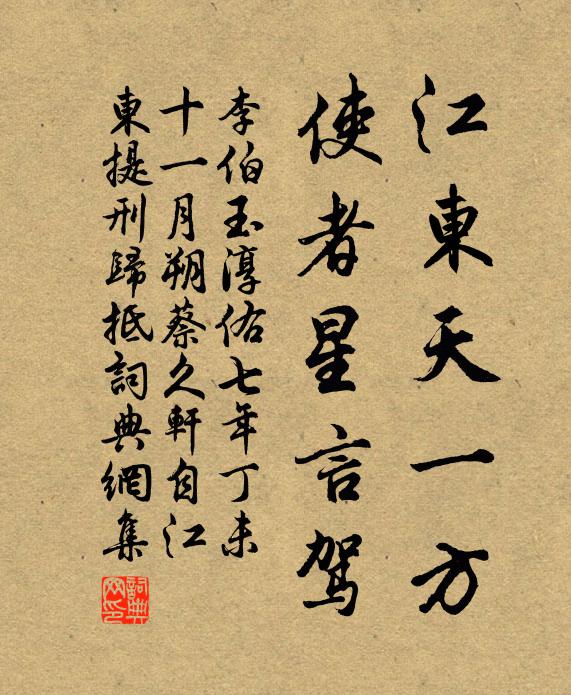 江東天一方
使者星言駕
李伯玉淳佑七年丁未
十一月朔蔡久軒自江
東提刑歸抵詞典網集
詞典
网印